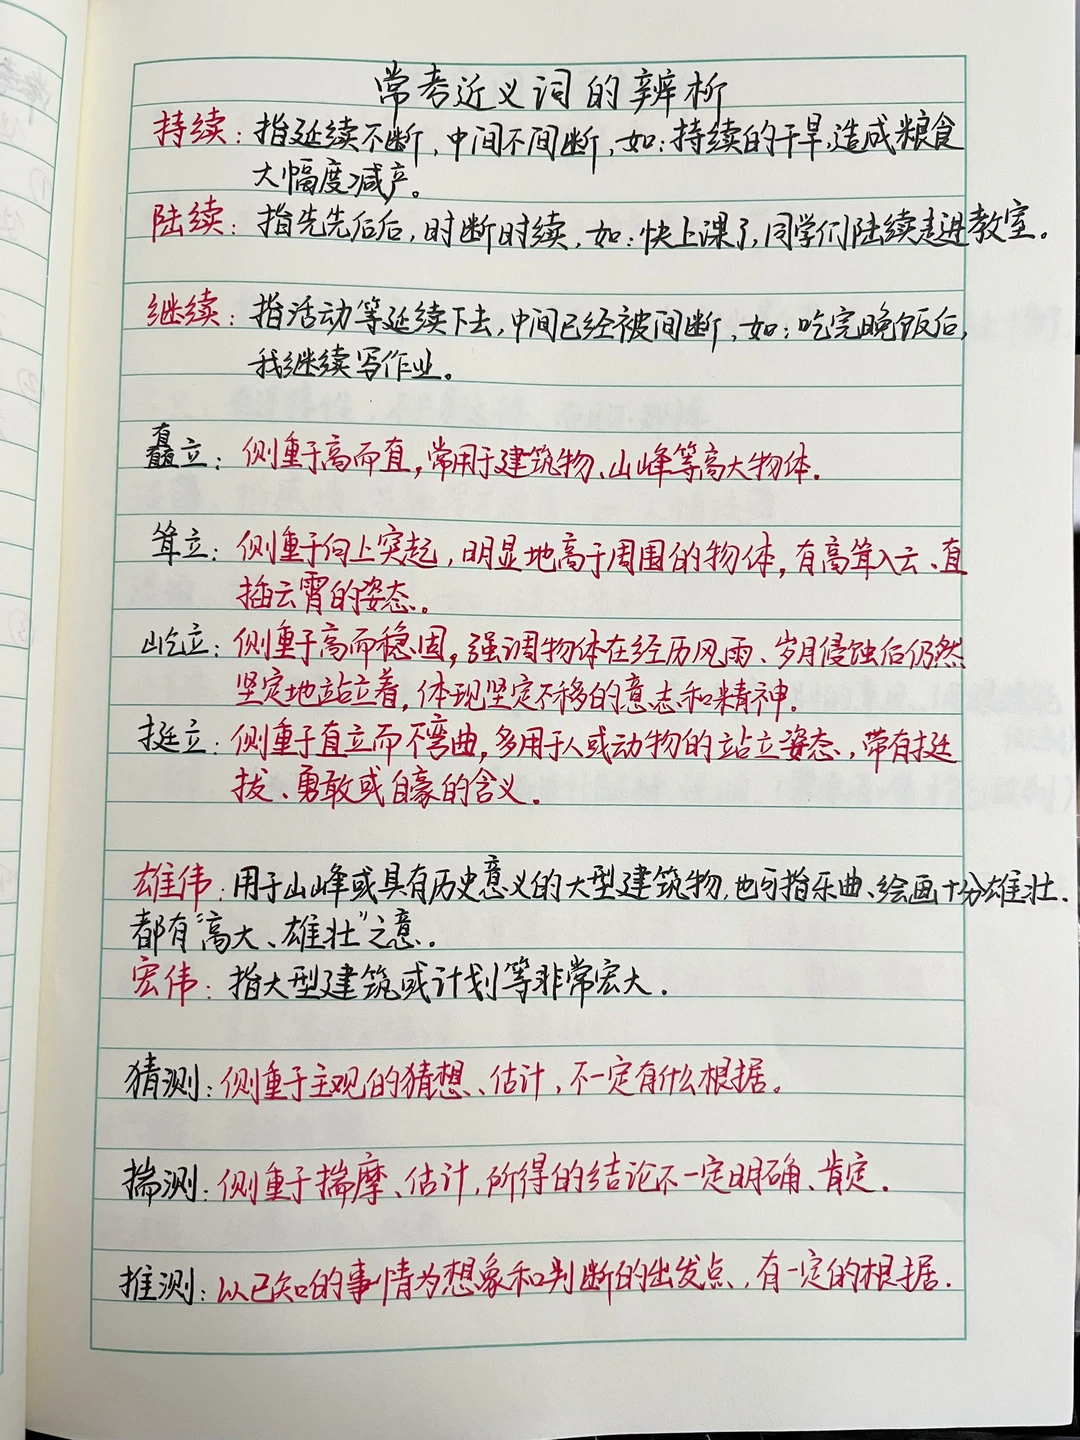 常考近义词的辨析
持续：指延续不断，中间不间断，如：持续的干旱，造成粮食
大幅度减产。
陆续：指先先后后，时断时续，如：快上课了，同学们陆续走进教室。
继续：指活动等延续下去，中间已经被间断，如：吃完晚饭后，
我继续写作业。
矗立：侧重于高而直，常用于建筑物、山峰等高大物体.
耸立：侧重于向上突起，明显地高于周围的物体，有高耸入云、直
插云霄的姿态。
屹立：侧重于高而稳固，强调物体在经历风雨、岁月侵蚀后仍然
坚定地站立着，体现坚定不移的意志和精神.
挺立：侧重于直立而不弯曲，多用于人或动物的站立姿态，带有挺
拔、勇敢或自豪的含义.
雄伟：用于山峰或具有历史意义的大型建筑物，也可指乐曲、绘画十分雄壮.
都有“高大、雄壮”之意.
宏伟：指大型建筑或计划等非常宏大.
猜测：侧重于主观的猜想、估计，不一定有什么根据。
揣测：侧重于揣摩、估计，所得的结论不一定明确、肯定.
推测：以已知的事情为想象和判断的出发点，有一定的根据.